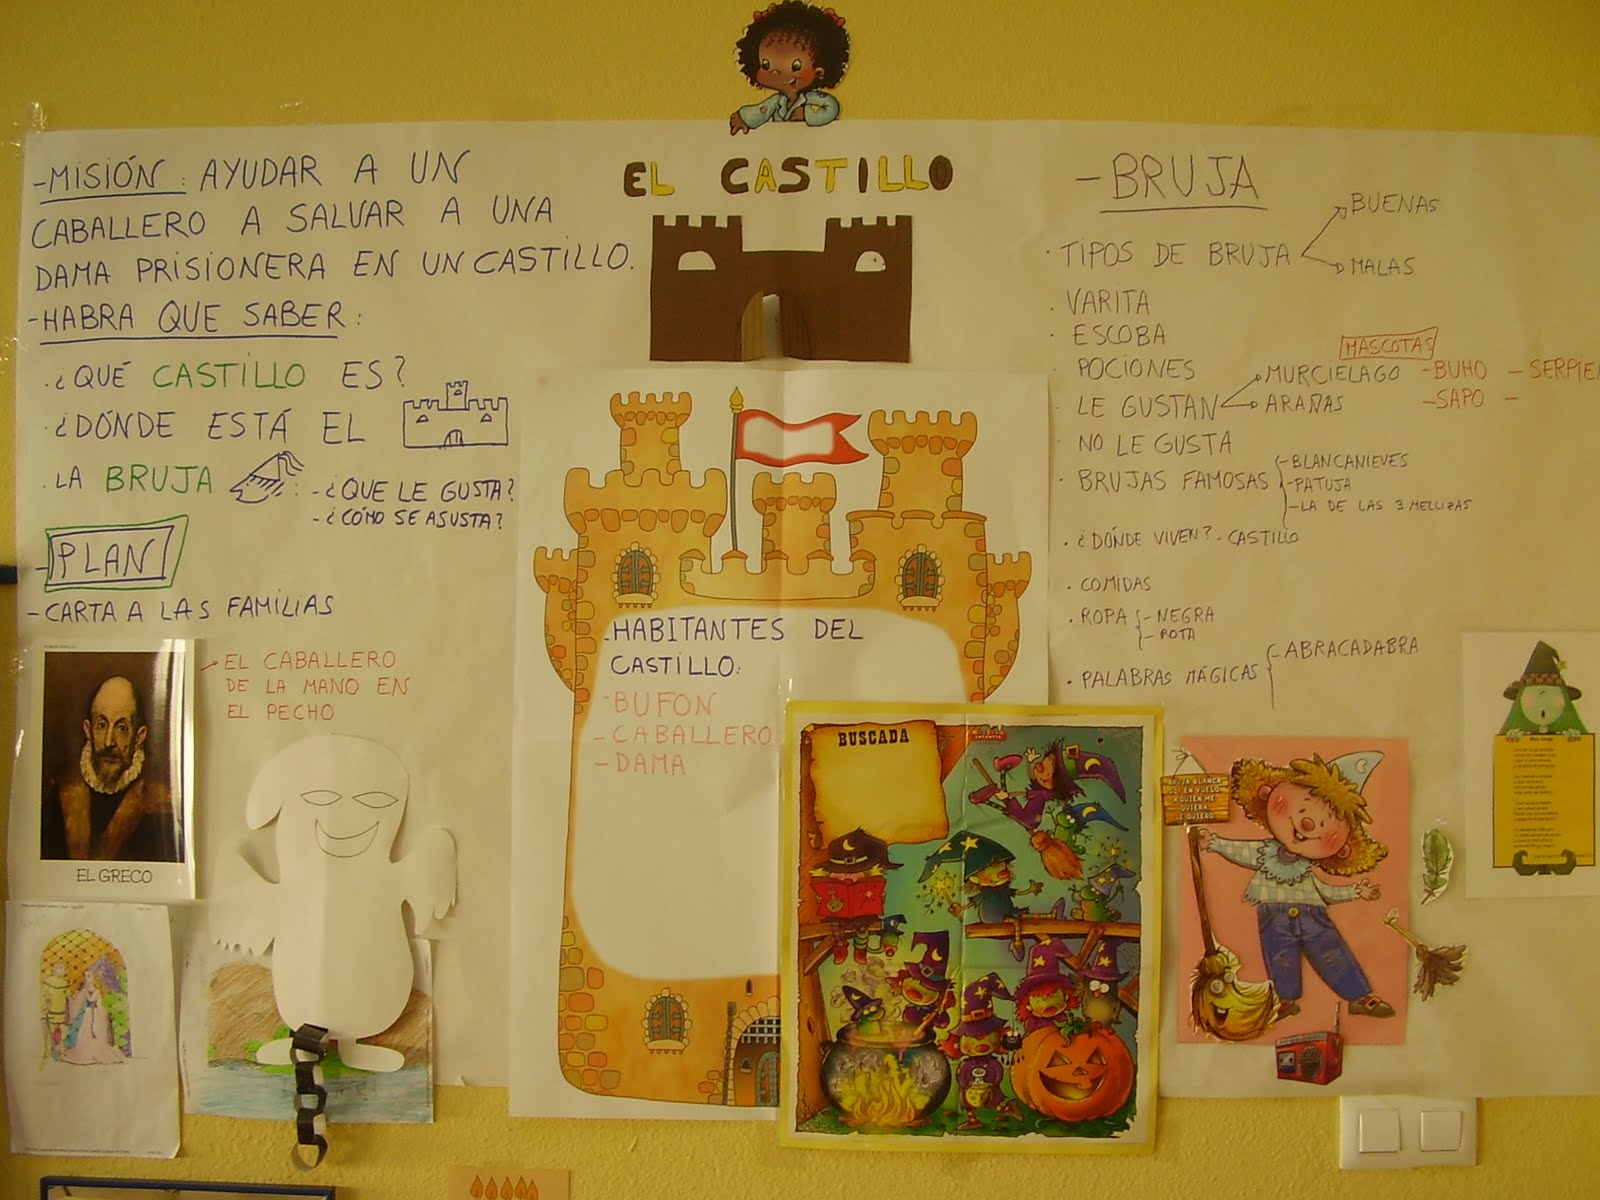 EL CASTILLO
-MISIÓN: AYUDAR A UN
CABALLERO A SALVAR A UNA
DAMA PRISIONERA EN UN CASTILLO.
-HABRA QUE SABER:
·¿QUÉ CASTILLO ES?
·¿DÓNDE ESTÁ EL
·LA BRUJA : -¿QUE LE GUSTA?
-¿CÓMO SE ASUSTA?
-PLAN
-CARTA A LAS FAMILIAS
EL CABALLERO
DE LA MANO EN
EL PECHO
EL GRECO
-HABITANTES DEL
CASTILLO:
-BUFON
-CABALLERO
-DAMA
BUSCADA
-BRUJA
·TIPOS DE BRUJA
BUENAS
MALAS
·VARITA
·ESCOBA
·POCIONES
·LE GUSTAN
MURCIELAGO
ARAÑAS
MASCOTAS
-BUHO -SERPIE
-SAPO -
·NO LE GUSTA
·BRUJAS FAMOSAS
-BLANCANIEVES
-PATUJA
-LA DE LAS 3 MELLIZAS
·¿DÓNDE VIVEN? -CASTILLO
·COMIDAS
·ROPA
-NEGRA
-ROTA
·PALABRAS MÁGICAS
-ABRACADABRA
BRUJA BLANCA
SOY EN VUELO
A QUIEN ME
QUIERA
LE QUIERO